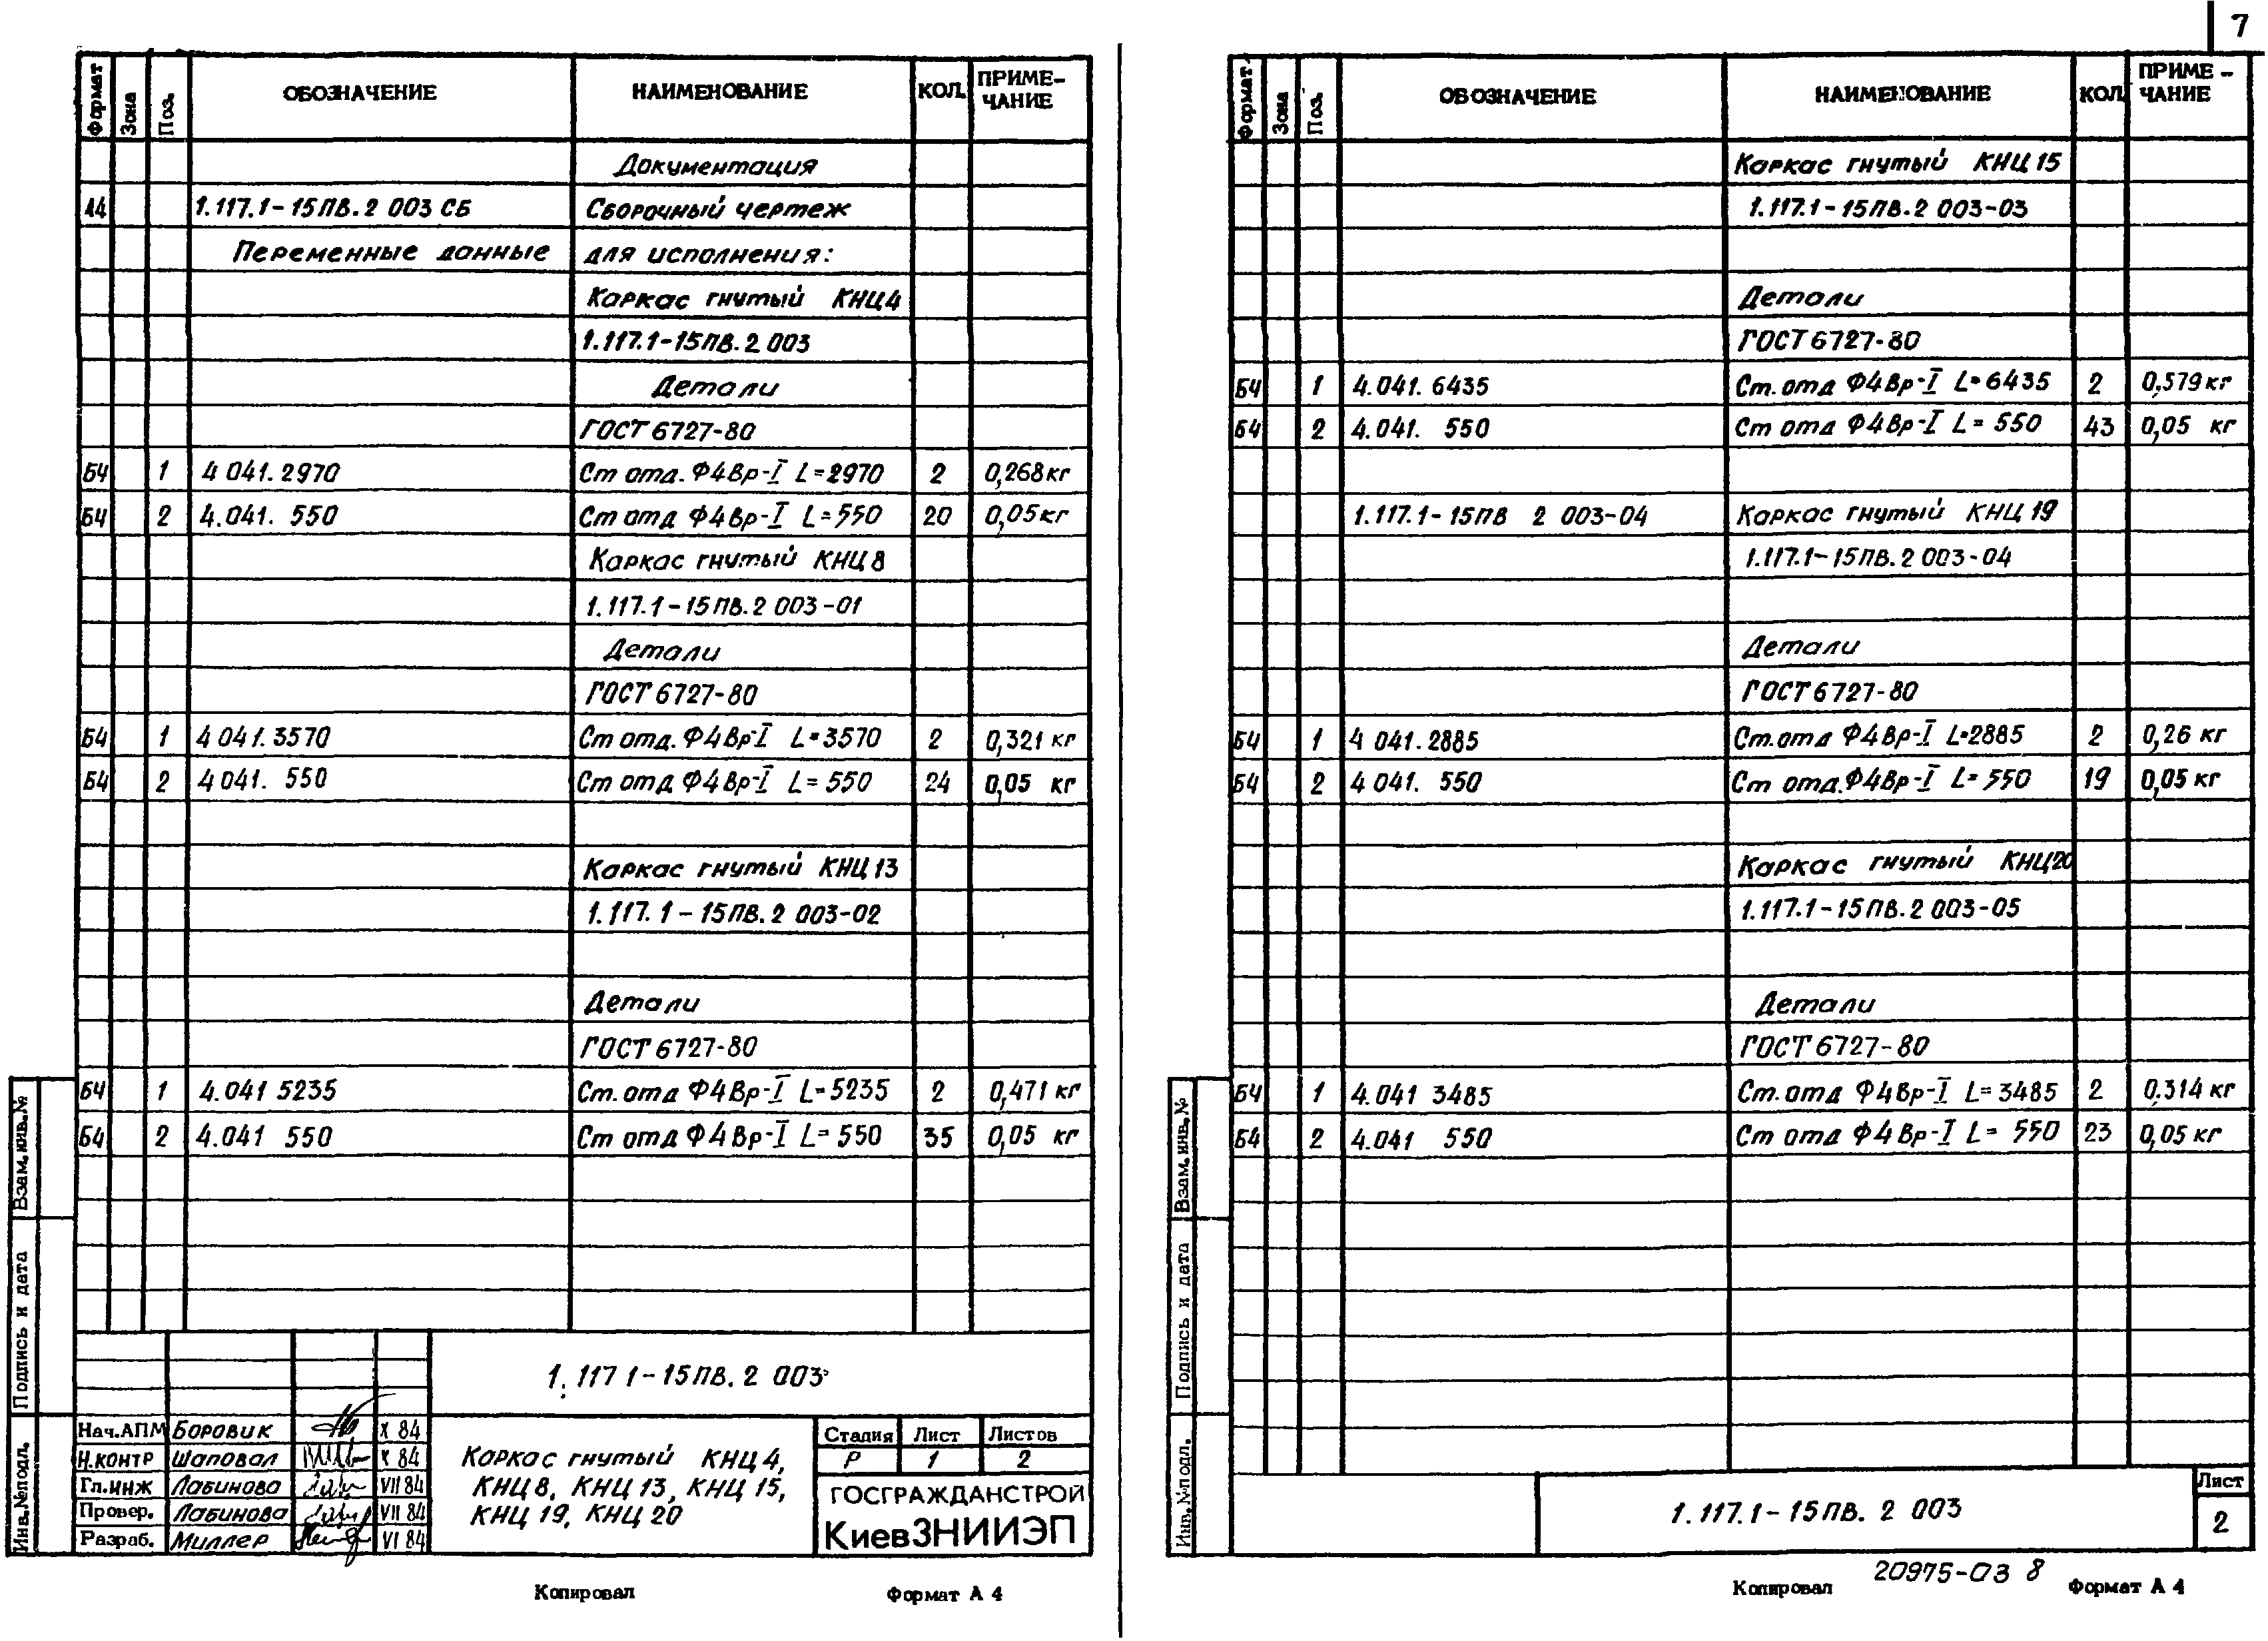 7
Формат Зона Поз. ОБОЗНАЧЕНИЕ НАИМЕНОВАНИЕ КОЛ. ПРИМЕ-
ЧАНИЕ
Документация
А4 1.117.1-15ПВ.2 003 СБ Сборочный чертеж
Переменные данные для исполнения:
Каркас гнутый КНЦ4
1.117.1-15ПВ.2 003
Детали
ГОСТ 6727-80
БЧ 1 4 041.2970 Ст отд. Ф4Вр-I L=2970 2 0,268кг
БЧ 2 4.041. 550 Ст отд Ф4Вр-I L=550 20 0,05кг
Каркас гнутый КНЦ 8
1.117.1-15ПВ.2 003-01
Детали
ГОСТ 6727-80
БЧ 1 4 041.3570 Ст отд. Ф4Вр-I L=3570 2 0,321 кг
БЧ 2 4 041. 550 Ст отд Ф4Вр-I L=550 24 0,05 кг
Каркас гнутый КНЦ 13
1.117.1-15ПВ.2 003-02
Детали
ГОСТ 6727-80
БЧ 1 4.041 5235 Ст. отд Ф4Вр-I L=5235 2 0,471 кг
БЧ 2 4.041 550 Ст отд Ф4Вр-I L=550 35 0,05 кг
Взам.инв.№
Подпись и дата
Инв.№подл.
1.117 1-15ПВ.2 003
Нач.АПМ Боровик X 84
Н.контр Шаповал X 84
Гл.инж Лабинова VII 84
Провер. Лабинова VII 84
Разраб. Миллер VI 84
Каркас гнутый КНЦ 4,
КНЦ 8, КНЦ 13, КНЦ 15,
КНЦ 19, КНЦ 20
Стадия Лист Листов
Р 1 2
ГОСГРАЖДАНСТРОЙ
КиевЗНИИЭП
Копировал Формат А 4
Формат Зона Поз. ОБОЗНАЧЕНИЕ НАИМЕНОВАНИЕ КОЛ. ПРИМЕ-
ЧАНИЕ
Каркас гнутый КНЦ 15
1.117.1-15ПВ.2 003-03
Детали
ГОСТ 6727-80
БЧ 1 4.041.6435 Ст. отд Ф4Вр-I L=6435 2 0,579кг
БЧ 2 4.041. 550 Ст отд Ф4Вр-I L=550 43 0,05 кг
1.117.1-15ПВ 2 003-04 Каркас гнутый КНЦ 19
1.117.1-15ПВ.2 003-04
Детали
ГОСТ 6727-80
БЧ 1 4 041.2885 Ст. отд Ф4Вр-I L=2885 2 0,26 кг
БЧ 2 4 041. 550 Ст отд. Ф4Вр-I L=550 19 0,05 кг
Каркас гнутый КНЦ20
1.117.1-15ПВ.2 003-05
Детали
ГОСТ 6727-80
БЧ 1 4.041 3485 Ст. отд Ф4Вр-I L=3485 2 0.314 кг
БЧ 2 4.041 550 Ст отд Ф4Вр-I L=550 23 0,05 кг
Взам.инв.№
Подпись и дата
Инв.№подл.
1.117.1-15ПВ.2 003
Лист
2
20975-03 8
Копировал Формат А 4